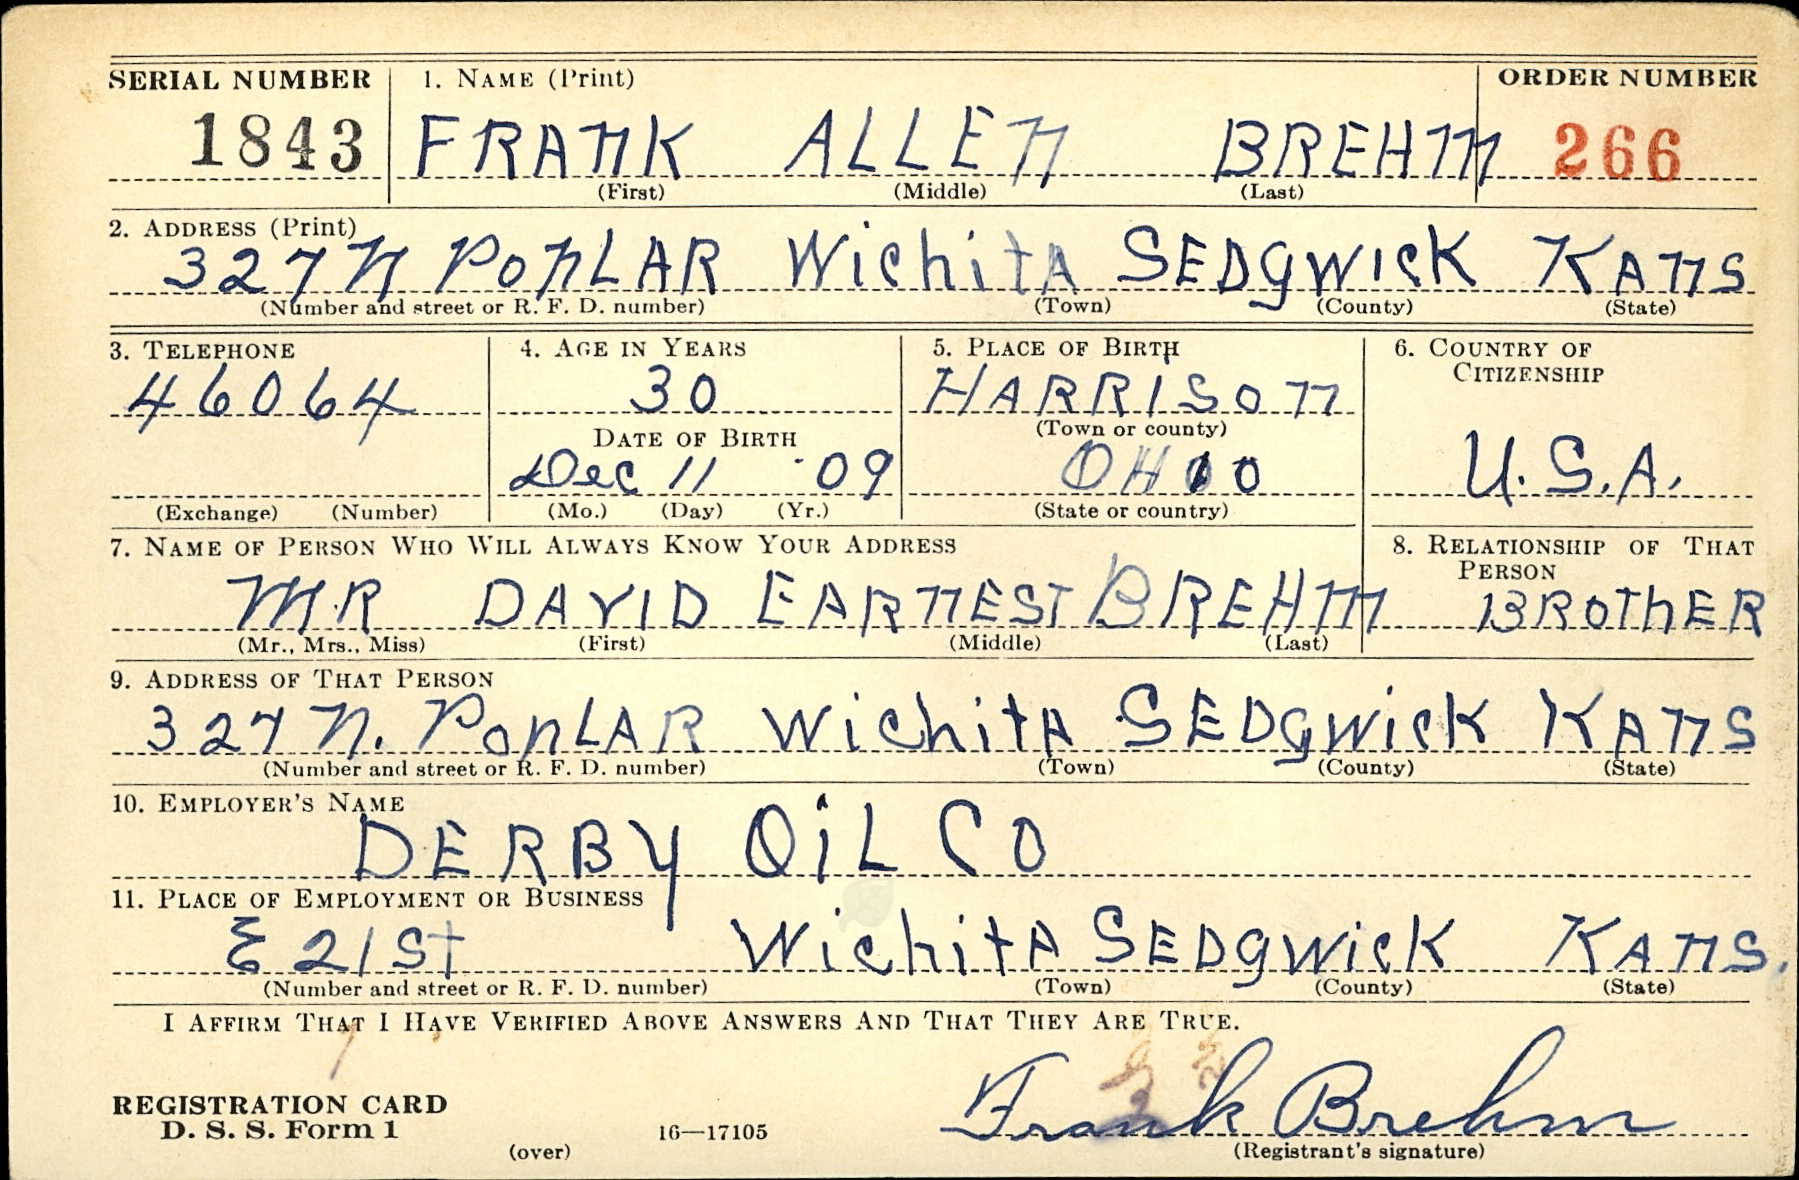 SERIAL NUMBER 1. NAME (Print) ORDER NUMBER
1843 FRANK ALLEN BREHM 266
(First) (Middle) (Last)
2. ADDRESS (Print)
327 N POPLAR WichitA SEDgWICK KANS
(Number and street or R. F. D. number) (Town) (County) (State)
3. TELEPHONE 4. AGE IN YEARS 5. PLACE OF BIRTH 6. COUNTRY OF CITIZENSHIP
46064 30 HARRISON
(Town or county)
DATE OF BIRTH
Dec 11 09 OHIO U.S.A.
(Exchange) (Number) (Mo.) (Day) (Yr.) (State or country)
7. NAME OF PERSON WHO WILL ALWAYS KNOW YOUR ADDRESS 8. RELATIONSHIP OF THAT PERSON
MR DAVID EARNEST BREHM BROThER
(Mr., Mrs., Miss) (First) (Middle) (Last)
9. ADDRESS OF THAT PERSON
327 N. POPLAR WichitA SEDgWicK KANS
(Number and street or R. F. D. number) (Town) (County) (State)
10. EMPLOYER'S NAME
DERBY OiL CO
11. PLACE OF EMPLOYMENT OR BUSINESS
E 21 St WichitA SEDgWicK KANS.
(Number and street or R. F. D. number) (Town) (County) (State)
I AFFIRM THAT I HAVE VERIFIED ABOVE ANSWERS AND THAT THEY ARE TRUE.
REGISTRATION CARD
D. S. S. Form 1 Frank Brehm
(over) 16—17105 (Registrant's signature)